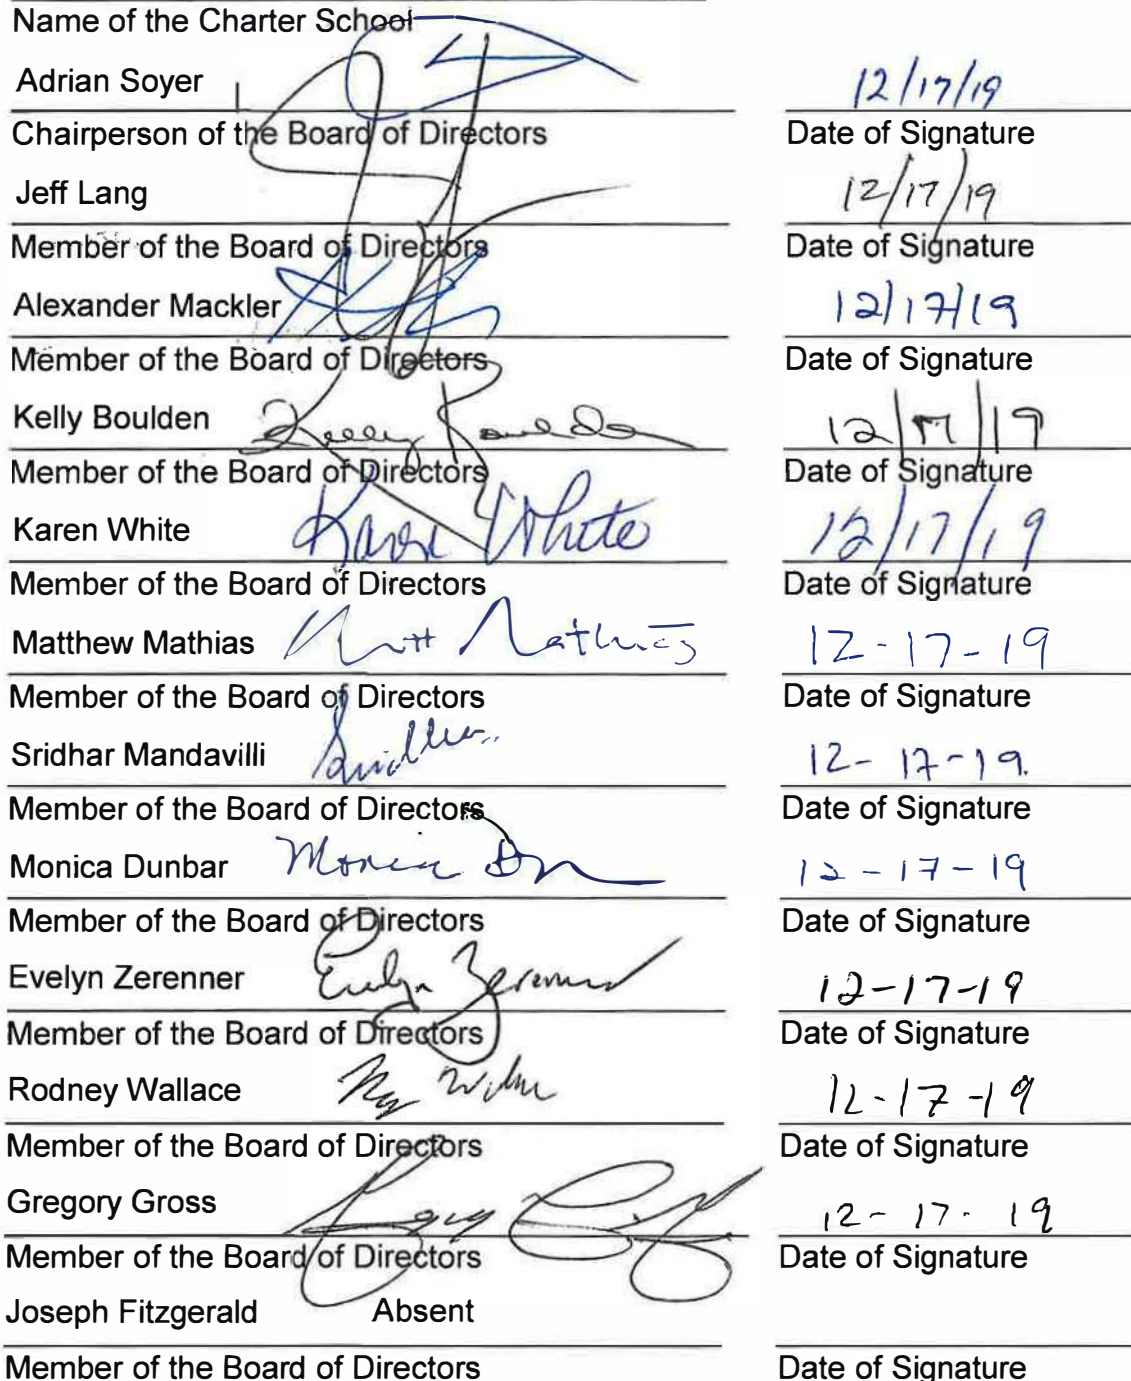 Name of the Charter School
Adrian Soyer 12/17/19
Chairperson of the Board of Directors Date of Signature
Jeff Lang 12/17/19
Member of the Board of Directors Date of Signature
Alexander Mackler 12/17/19
Member of the Board of Directors Date of Signature
Kelly Boulden Kelly Boulden 12/17/19
Member of the Board of Directors Date of Signature
Karen White Karen White 12/17/19
Member of the Board of Directors Date of Signature
Matthew Mathias Matt Mathias 12-17-19
Member of the Board of Directors Date of Signature
Sridhar Mandavilli 12-17-19.
Member of the Board of Directors Date of Signature
Monica Dunbar Monica 12-17-19
Member of the Board of Directors Date of Signature
Evelyn Zerenner Evelyn Zerenner 12-17-19
Member of the Board of Directors Date of Signature
Rodney Wallace 12-17-19
Member of the Board of Directors Date of Signature
Gregory Gross 12-17-19
Member of the Board of Directors Date of Signature
Joseph Fitzgerald Absent
Member of the Board of Directors Date of Signature